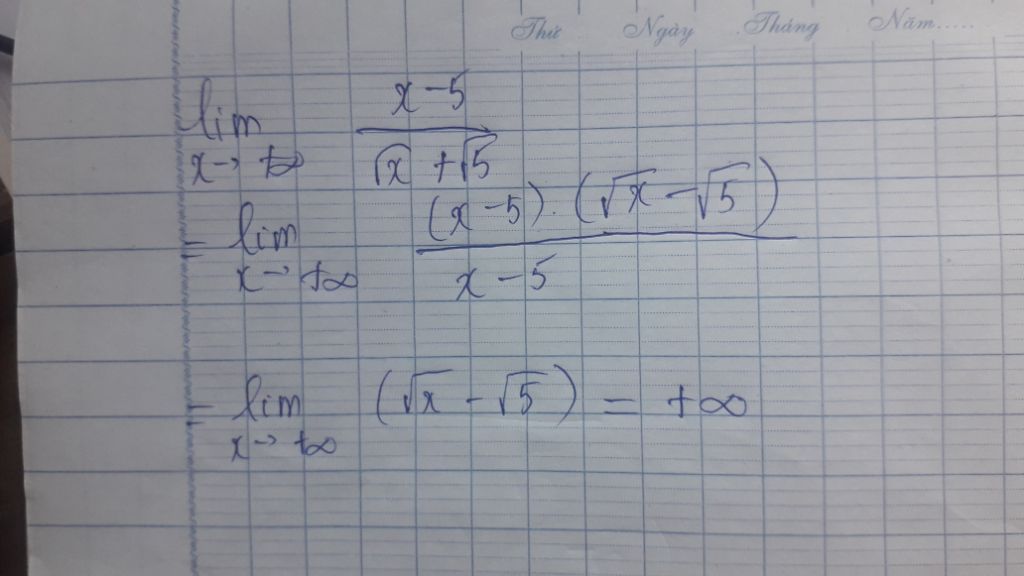 Thứ Ngày Tháng Năm.....
lim x→ +∞ (x-5)/(√x +√5)
= lim x→ +∞ ((x-5).(√x-√5))/(x-5)
= lim x→ +∞ (√x - √5) = +∞